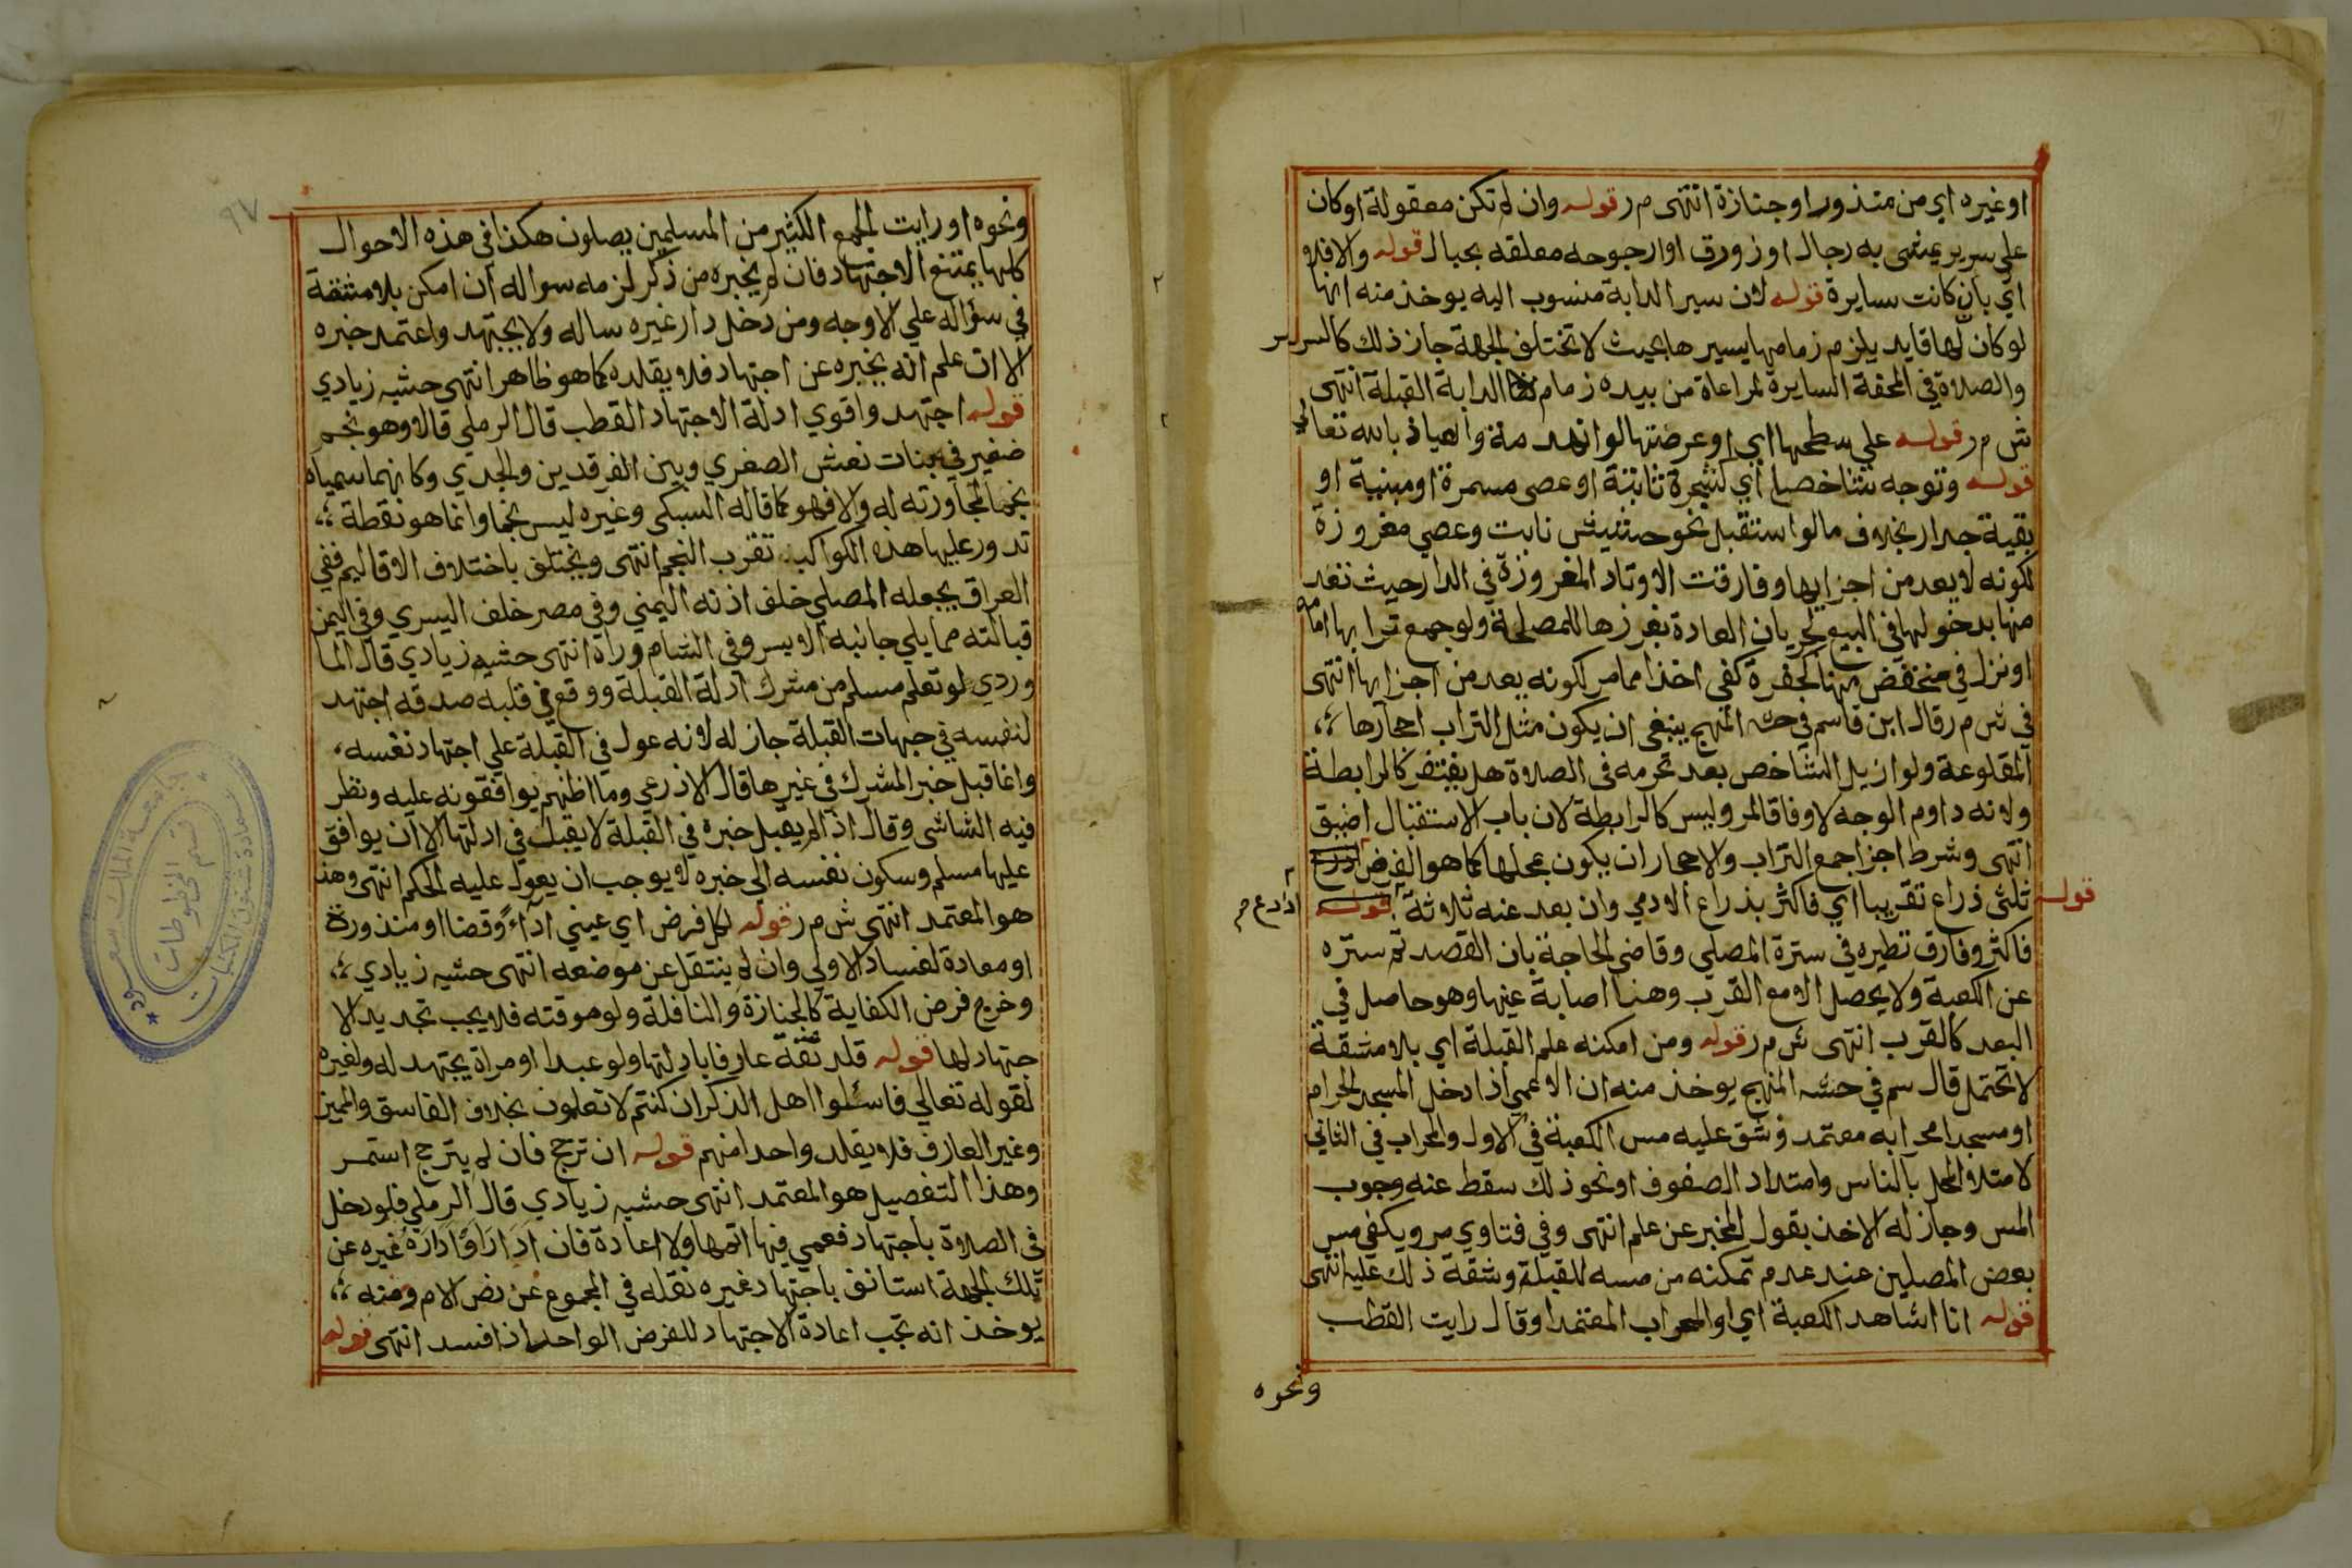 او غيره اي من منذور او جنازة انتهى م ر قوله وان لم تكن معقولة او كان
على سرير يمشى به رجال او زورق او ارجوحه معلقه بحبال قوله والا فلا
اي بان كانت سايرة قوله لان سير الدابة منسوب اليه يوخذ منه انها
لو كان لها قايد يلزم زمامها يسيرها بحيث لا تختلف الجهة جاز ذلك كالسرير
والصلاة في المحفة السايرة لمراعاة من بيده زمام الدابة القبلة انتهى
ش م ر قوله علي سطحها اي او عرضتها لو انهدمة والعياذ بالله تعالي
قوله وتوجه شاخصا اي كشجرة ثابتة او عصى مسمرة او مبنية او
بقية جدار بخلاف ما لو استقبل نحو حشيش نابت وعصي مغروزة
لكونه لا يعد من اجزايها وفارقت الاوتاد المغروزة في الدار حيث تعد
منها بدخولها في البيع لجريان العادة بغرزها للمصلحة ولو جمع ترابها امامه
او نزل في منخفض منها كحفرة كفي اخذا مما مر لكونه يعد من اجزايها انتهى
في ش م ر قال ابن قاسم في حشه المنهج ينبغي ان يكون مثل التراب احجارها
المقلوعة ولو ازيل الشاخص بعد تحرمه في الصلاة هل يغتفر كالرابطة
ولانه داوم الوجه لا وفاقا لمر وليس كالرابطة لان باب الاستقبال اضيق
انتهى وشرط اجزا جمع التراب والاحجار ان يكون بمحلها كما هو الفرض
قوله ثلثي ذراع تقريبا اي فاكثر بذراع الادمي وان بعد عنه ثلاثة اذرع
فاكثر وفارق نظيره في سترة المصلي وقاضي الحاجة بان القصد ثم ستره
عن الكعبة ولا يحصل الا مع القرب وهنا اصابة عينها وهو حاصل في
البعد كالقرب انتهى ش م ر قوله ومن امكنه علم القبلة اي بلا مشقة
لا تحتمل قال سم في حشه المنهج يوخذ منه ان الاعمي اذا دخل المسجد الحرام
او مسجدا محرابه معتمد وشق عليه مس الكعبة في الاول والمحراب في الثاني
لامتلا المحل بالناس وامتداد الصفوف او نحو ذلك سقط عنه وجوب
المس وجاز له الاخذ بقول المخبر عن علم انتهى وفي فتاوي مر ويكفي مس
بعض المصلين عند عدم تمكنه من مسه للقبلة وشقة ذلك عليه انتهى
قوله انا اشاهد الكعبة اي او المحراب المعتمد او قال رايت القطب
ونحوه
٩٧
ونحوه او رايت الجمع الكثير من المسلمين يصلون هكذا في هذه الاحوال
كلها يمتنع الاجتهاد فان لم يخبره من ذكر لزمه سواله ان امكن بلا مشقة
في سؤاله علي الاوجه ومن دخل دار غيره ساله ولا يجتهد واعتمد خبره
الا ان علم انه يخبره عن اجتهاد فلا يقلده كما هو ظاهر انتهى حشيه زيادي
قوله اجتهد واقوي ادلة الاجتهاد القطب قال الرملي قالا وهو نجم
صغير في بنات نعش الصغري وبين الفرقدين والجدي وكانهما سمياه
نجما لمجاورته له والا فهو كما قاله السبكي وغيره ليس نجما وانما هو نقطة
تدور عليها هذه الكواكب تقرب النجم انتهى ويختلف باختلاف الاقاليم ففي
العراق يجعله المصلي خلف اذنه اليمني وفي مصر خلف اليسري وفي اليمن
قبالته مما يلي جانبه الايسر وفي الشام وراه انتهى حشيه زيادي قال الما
وردي لو تعلم مسلم من مشرك ادلة القبلة ووقع في قلبه صدقه اجتهد
لنفسه في جهات القبلة جاز له لانه عول في القبلة علي اجتهاد نفسه
وانما قبل خبر المشرك في غيرها قال الاذرعي وما اظنهم يوافقونه عليه ونظر
فيه الشاشي وقال اذا لم يقبل خبره في القبلة لا يقبل في ادلتها الا ان يوافق
عليها مسلم وسكون نفسه الي خبره لا يوجب ان يعول عليه الحكم انتهى وهذا
هو المعتمد انتهى ش م ر قوله لكل فرض اي عيني اداء وقضا او منذورة
او معادة لفساد الاولي وان لم ينتقل عن موضعه انتهى حشيه زيادي
وخرج فرض الكفاية كالجنازة والنافلة ولو موقته فلا يجب تجديد الا
جتهاد لها قوله قلد ثقة عارفا بادلتها ولو عبدا او مراة يجتهد له ولغيره
لقوله تعالي فاسئلوا اهل الذكر ان كنتم لا تعلمون بخلاف الفاسق والمميز
وغير العارف فلا يقلد واحدا منهم قوله ان ترجح فان لم يترجح استمر
وهذا التفصيل هو المعتمد انتهى حشيه زيادي قال الرملي فلو دخل
في الصلاة باجتهاد فعمي فيها اتمها ولا اعادة فان ادار او اداره غيره عن
تلك الجهة استانف باجتهاد غيره نقله في المجموع عن نص الام ومنه
يوخذ انه تجب اعادة الاجتهاد للفرض الواحد اذا فسد انتهى قوله
قسم المخطوطات